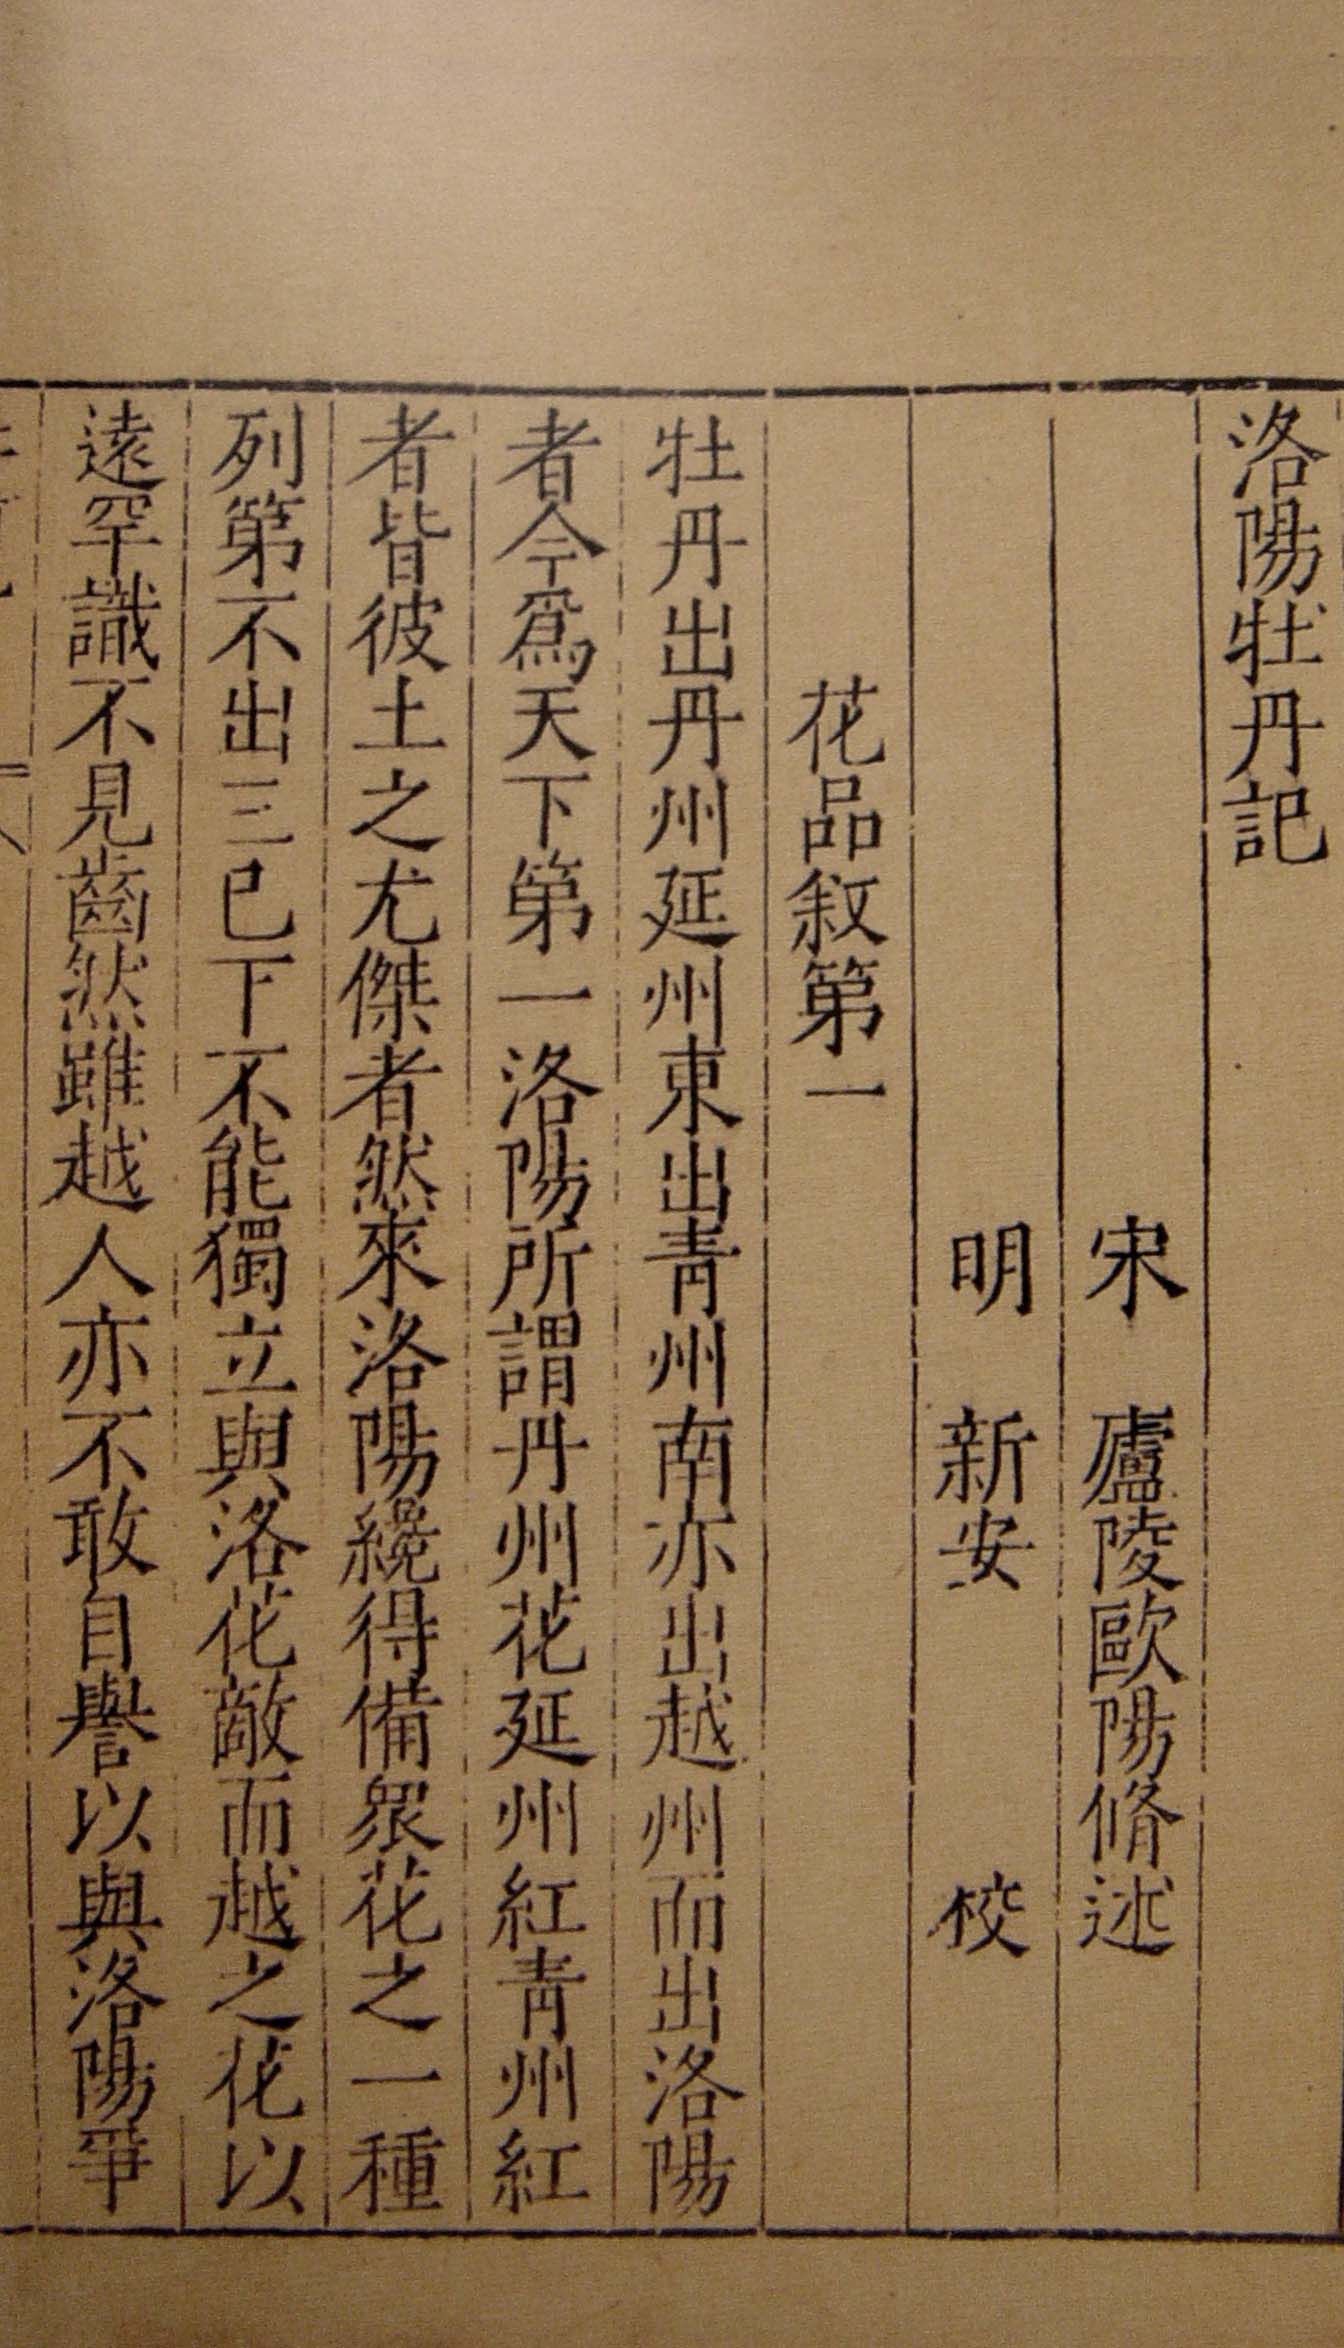 洛陽牡丹記
宋 廬陵歐陽脩述
明 新安 校
花品敘第一
牡丹出丹州延州東出青州南亦出越州而出洛陽
者今爲天下第一洛陽所謂丹州花延州紅青州紅
者皆彼土之尤傑者然來洛陽纔得備眾花之一種
列第不出三已下不能獨立與洛花敵而越之花以
遠罕識不見齒然雖越人亦不敢自譽以與洛陽爭